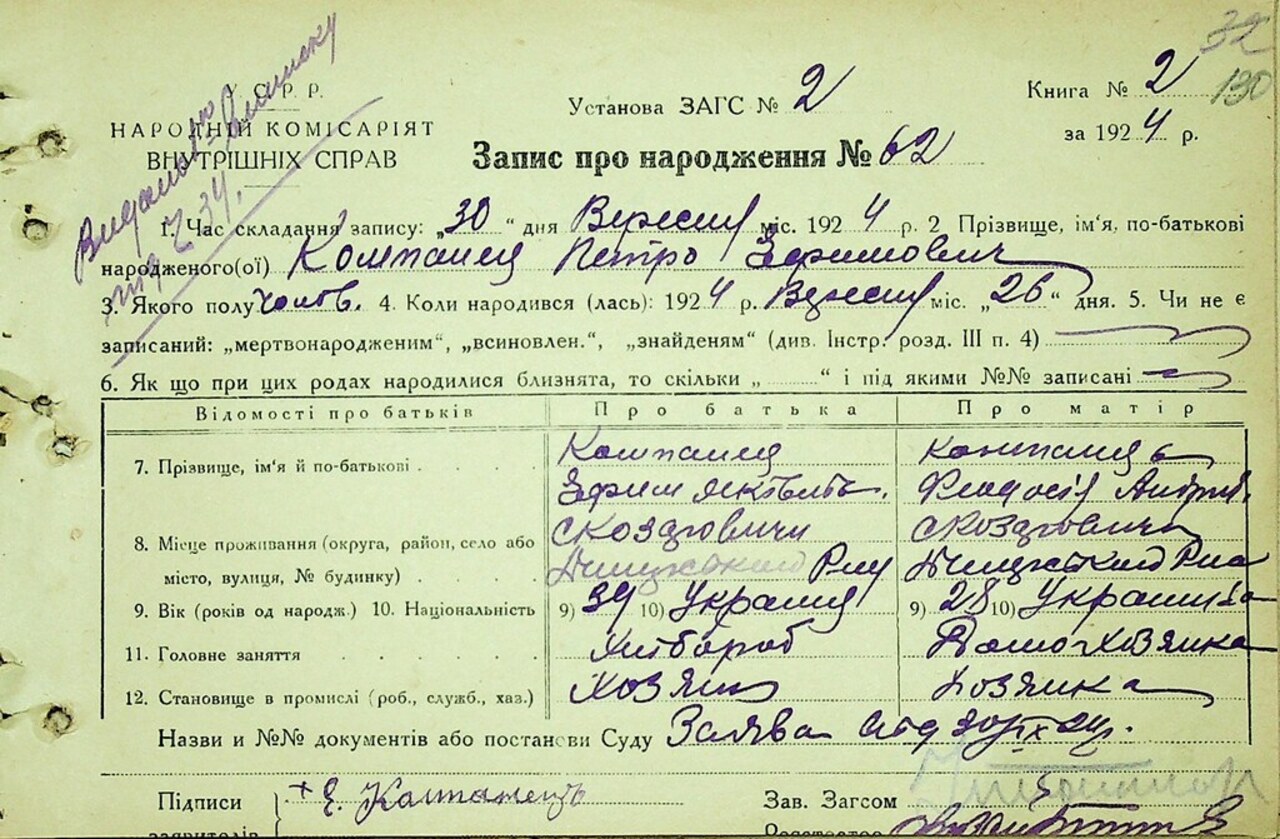 32
130
У. С. Р. Р.
НАРОДНІЙ КОМІСАРІЯТ
ВНУТРІШНІХ СПРАВ
Установа ЗАГС № 2
Книга № 2
за 1924 р.
Запис про народження № 62
1. Час складання запису: „30“ дня Вересня міс. 1924 р. 2 Прізвище, ім‘я, по-батькові
народженого(ої) Компанец Петро Ефимович
3. Якого полу чолов. 4. Коли народився (лась): 1924 р. Вересня міс. „26“ дня. 5. Чи не є
записаний: „мертвонародженим“, „всиновлен.“, „знайденям“ (див. Інстр. розд. III п. 4)
6. Як що при цих родах народилися близнята, то скільки „ “ і під якими №№ записані
Відомості про батьків Про батька Про матір
7. Прізвище, ім'я й по-батькові Компанец Компанець
Ефим Феодосія
8. Місце проживання (округа, район, село або
місто, вулиця, № будинку)
9. Вік (років од народж.) 10. Національність 9) 39 10) Украинец 9) 28 10) Украинка
11. Головне заняття Хлібороб Домохозяйка
12. Становище в промислі (роб., служб., хаз.) Хозяин Хозяйка
Назви и №№ документів або постанови Суду Заява від 30/IX 24 р.
Підписи + Е. Компанець Зав. Загсом
заявителів